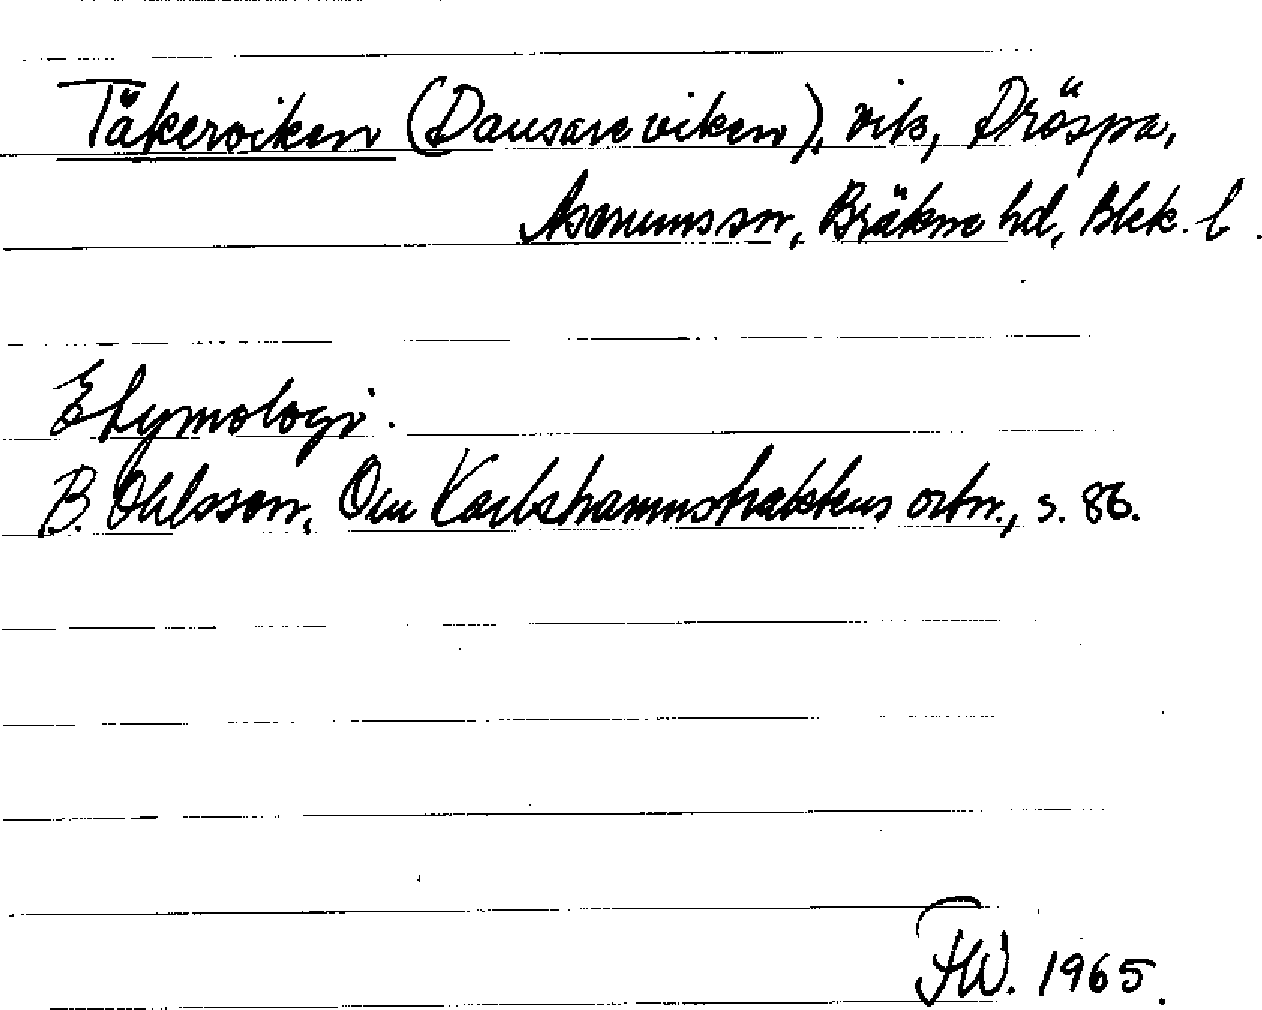 Täkerviken (Dansareviken), vik, Dröspa,
Asarums sn, Bräkne hd, Blek. l.
Etymologi.
B. Ohlsson, Om Karlshamnstraktens ortn., s. 86.
FW. 1965.